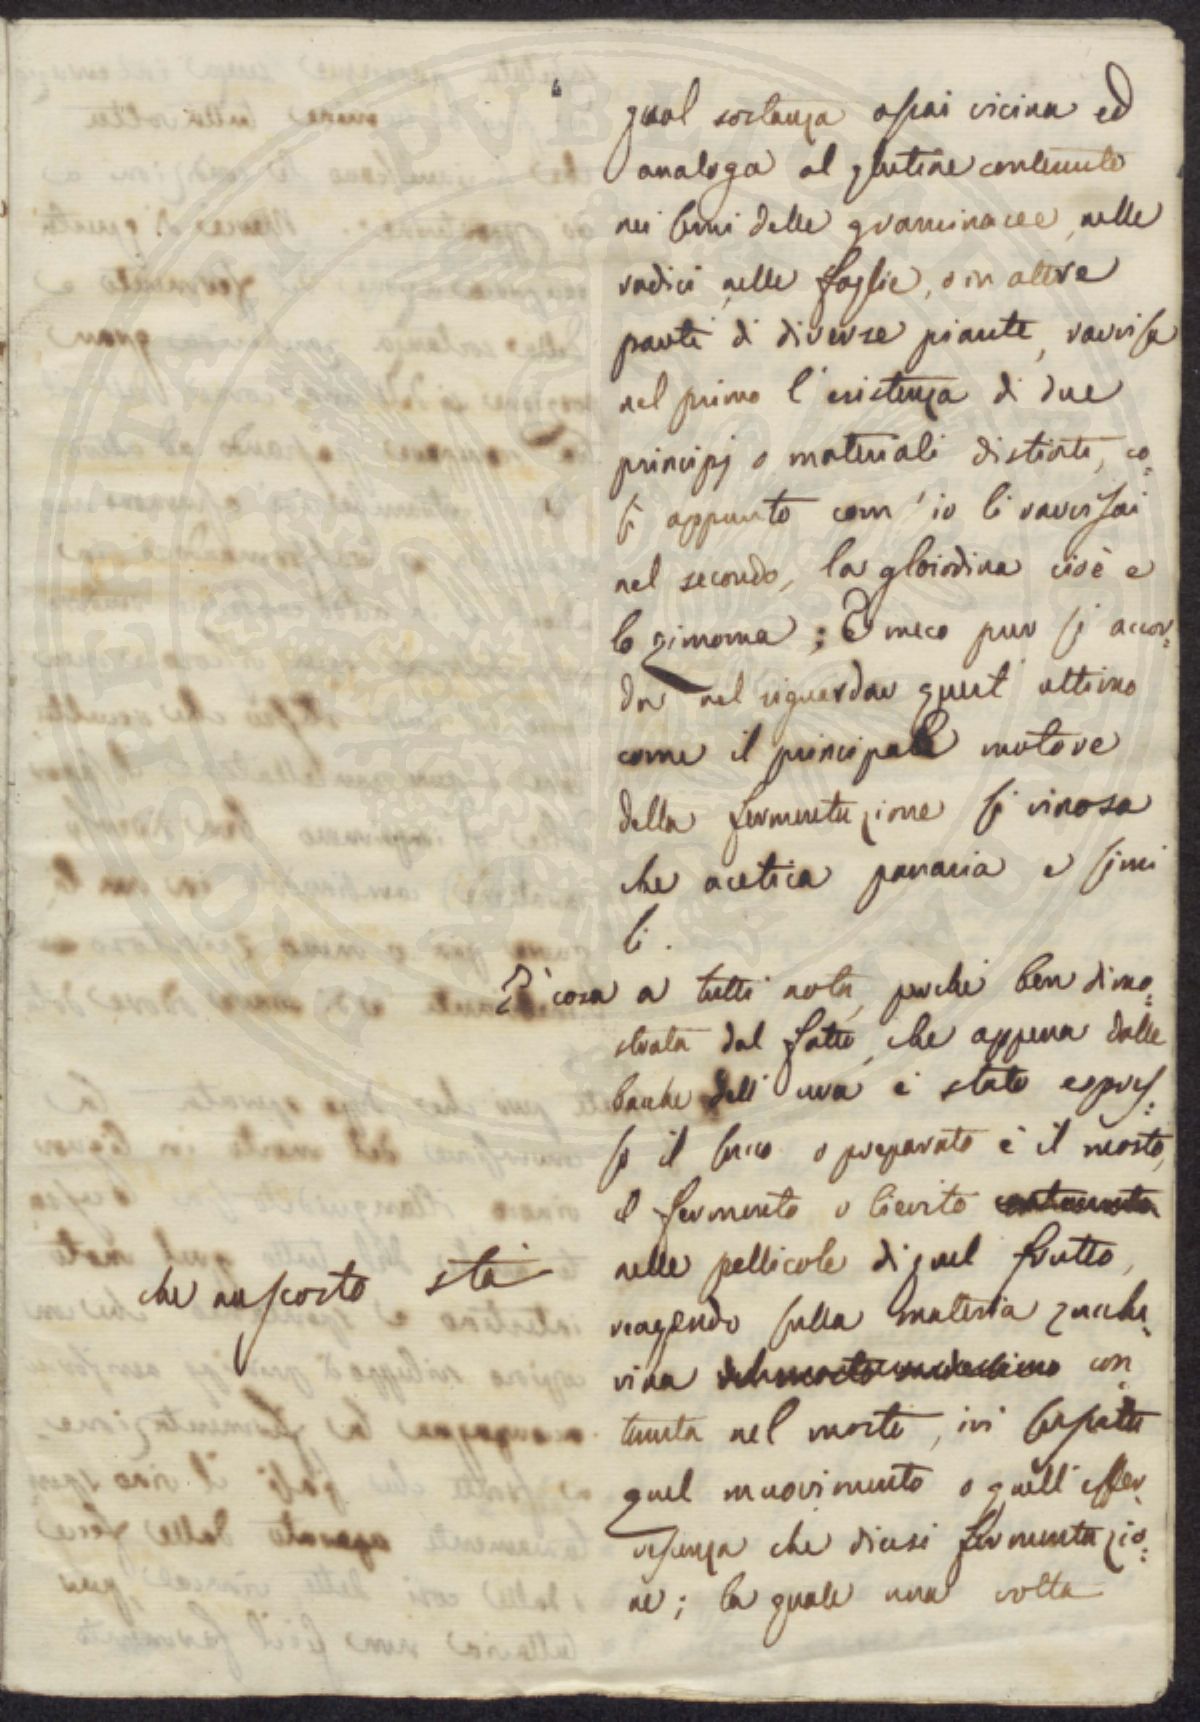 qual sostanza assai vicina ed
analoga al glutine contenuto
nei semi delle graminacee, nelle
radici nelle foglie, o in altre
parti di diverse piante, ravvisa
nel primo l'esistenza di due
principj o materiali distinti, co=
sì appunto com'io li ravvisai
nel secondo, la gloiodina cioè e
lo zimoma; E meco pur si accor=
da nel riguardar quest'ultimo
come il principale motore
della fermentazione sì vinosa
che acetica panaria e simi
li.
E' cosa a tutti nota, perchè ben dimo=
strata dal fatto, che appena dalle
bacche dell'uva è stato espres=
so il succo o preparato è il mosto,
il fermento o lievito contenuto
che nascosto sta
nelle pellicole di quel frutto,
reagendo sulla materia zucche=
rina del mosto medesimo con=
tenuta nel mosto, ivi suscita
quel muovimento o quell'effer=
vescenza che dicesi fermentazio=
ne; la quale una volta